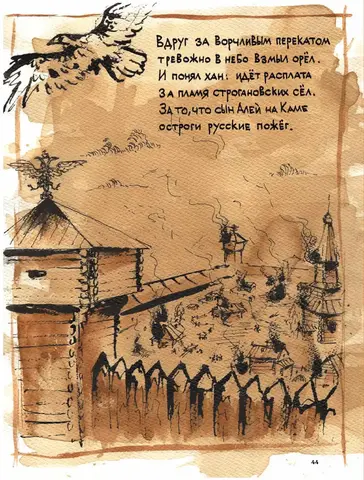 Вдруг за ворчливым перекатом
тревожно в небо взмыл орёл.
И понял хан: идёт расплата
за пламя строгановских сёл.
За то, что сын Алей на Каме
остроги русские пожёг.
44